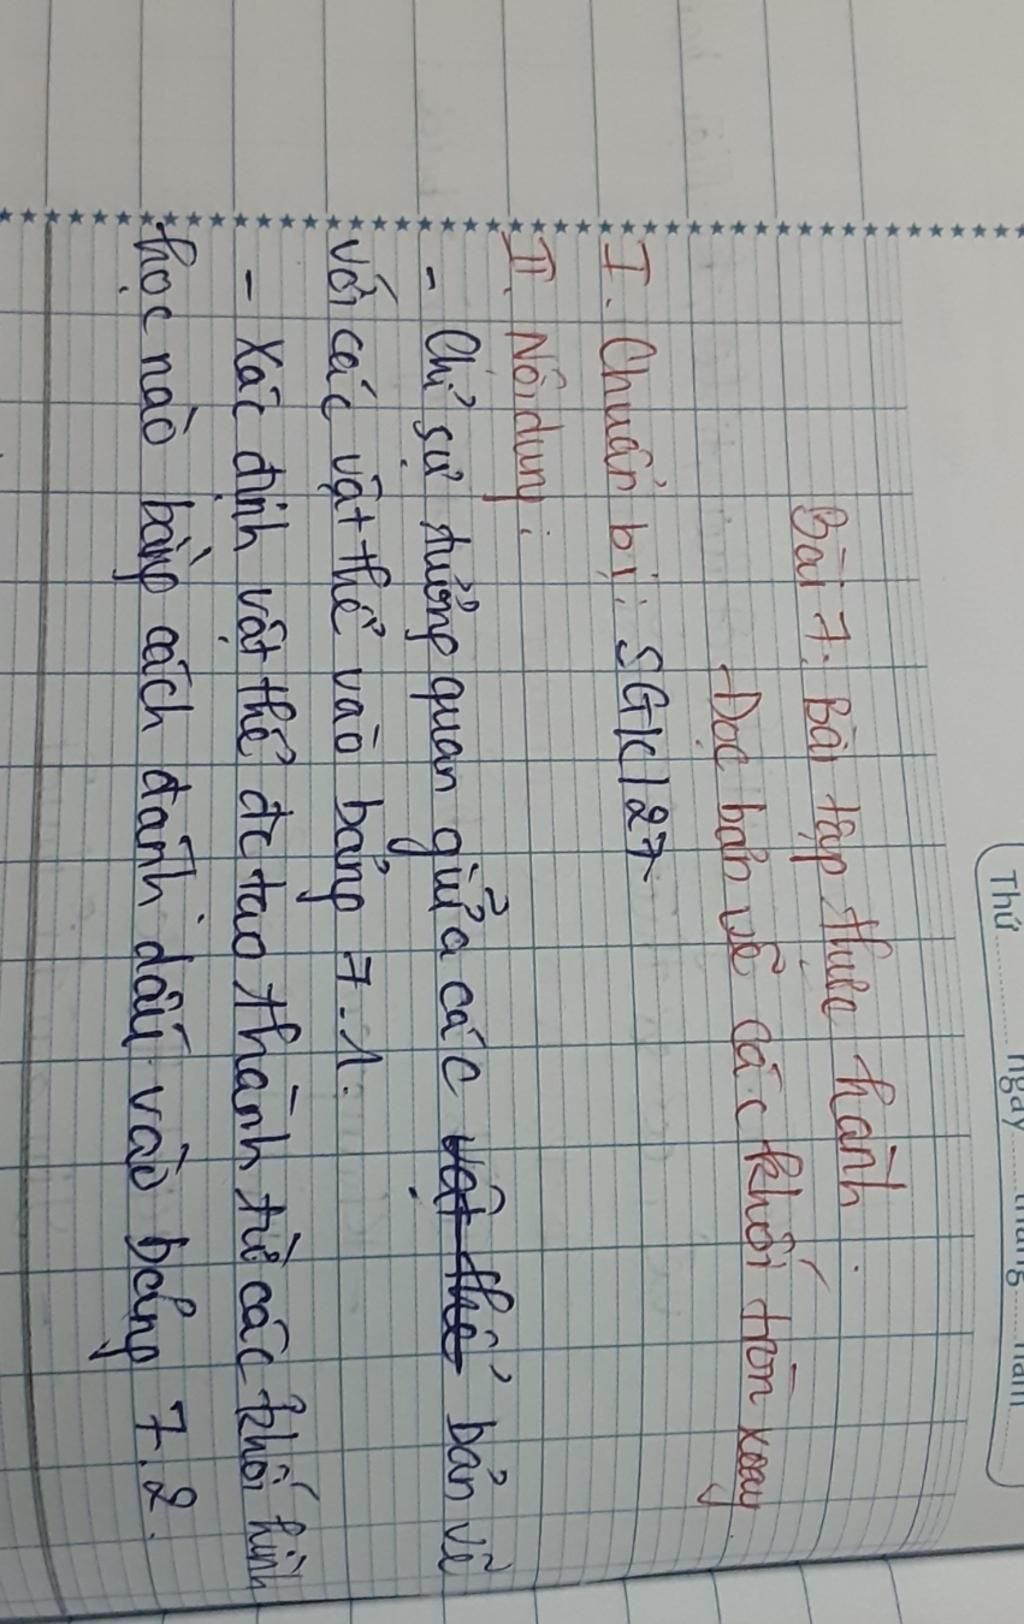 Thứ ngày tháng năm
Bài 7. Bài tập thực hành.
Đọc bản vẽ các khối tròn xoay.
I. Chuẩn bị: SGK/27
II. Nội dung:
- Chỉ sự tưởng quan giữa các vật thể bản vẽ
với các vật thể vào bảng 7.1.
- Xác định vật thể đc tạo thành từ các khối hình
học nào bằng cách đánh dấu vào bảng 7.2.